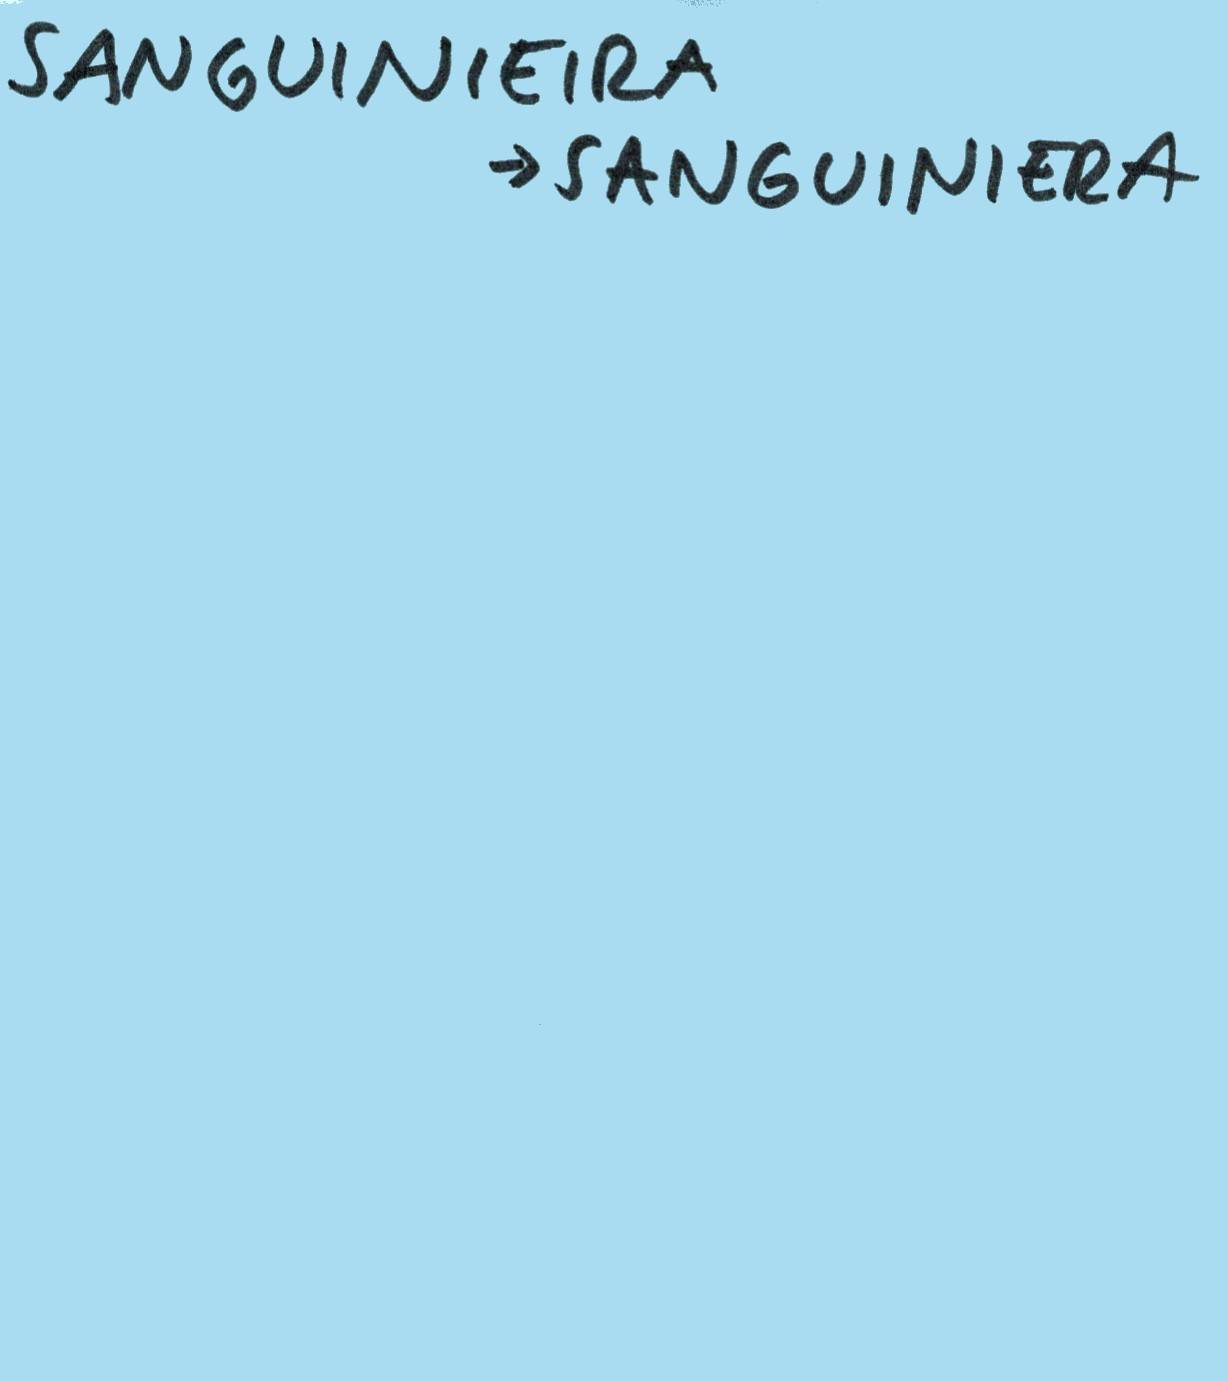 SANGUINIEIRA
→SANGUINIERA